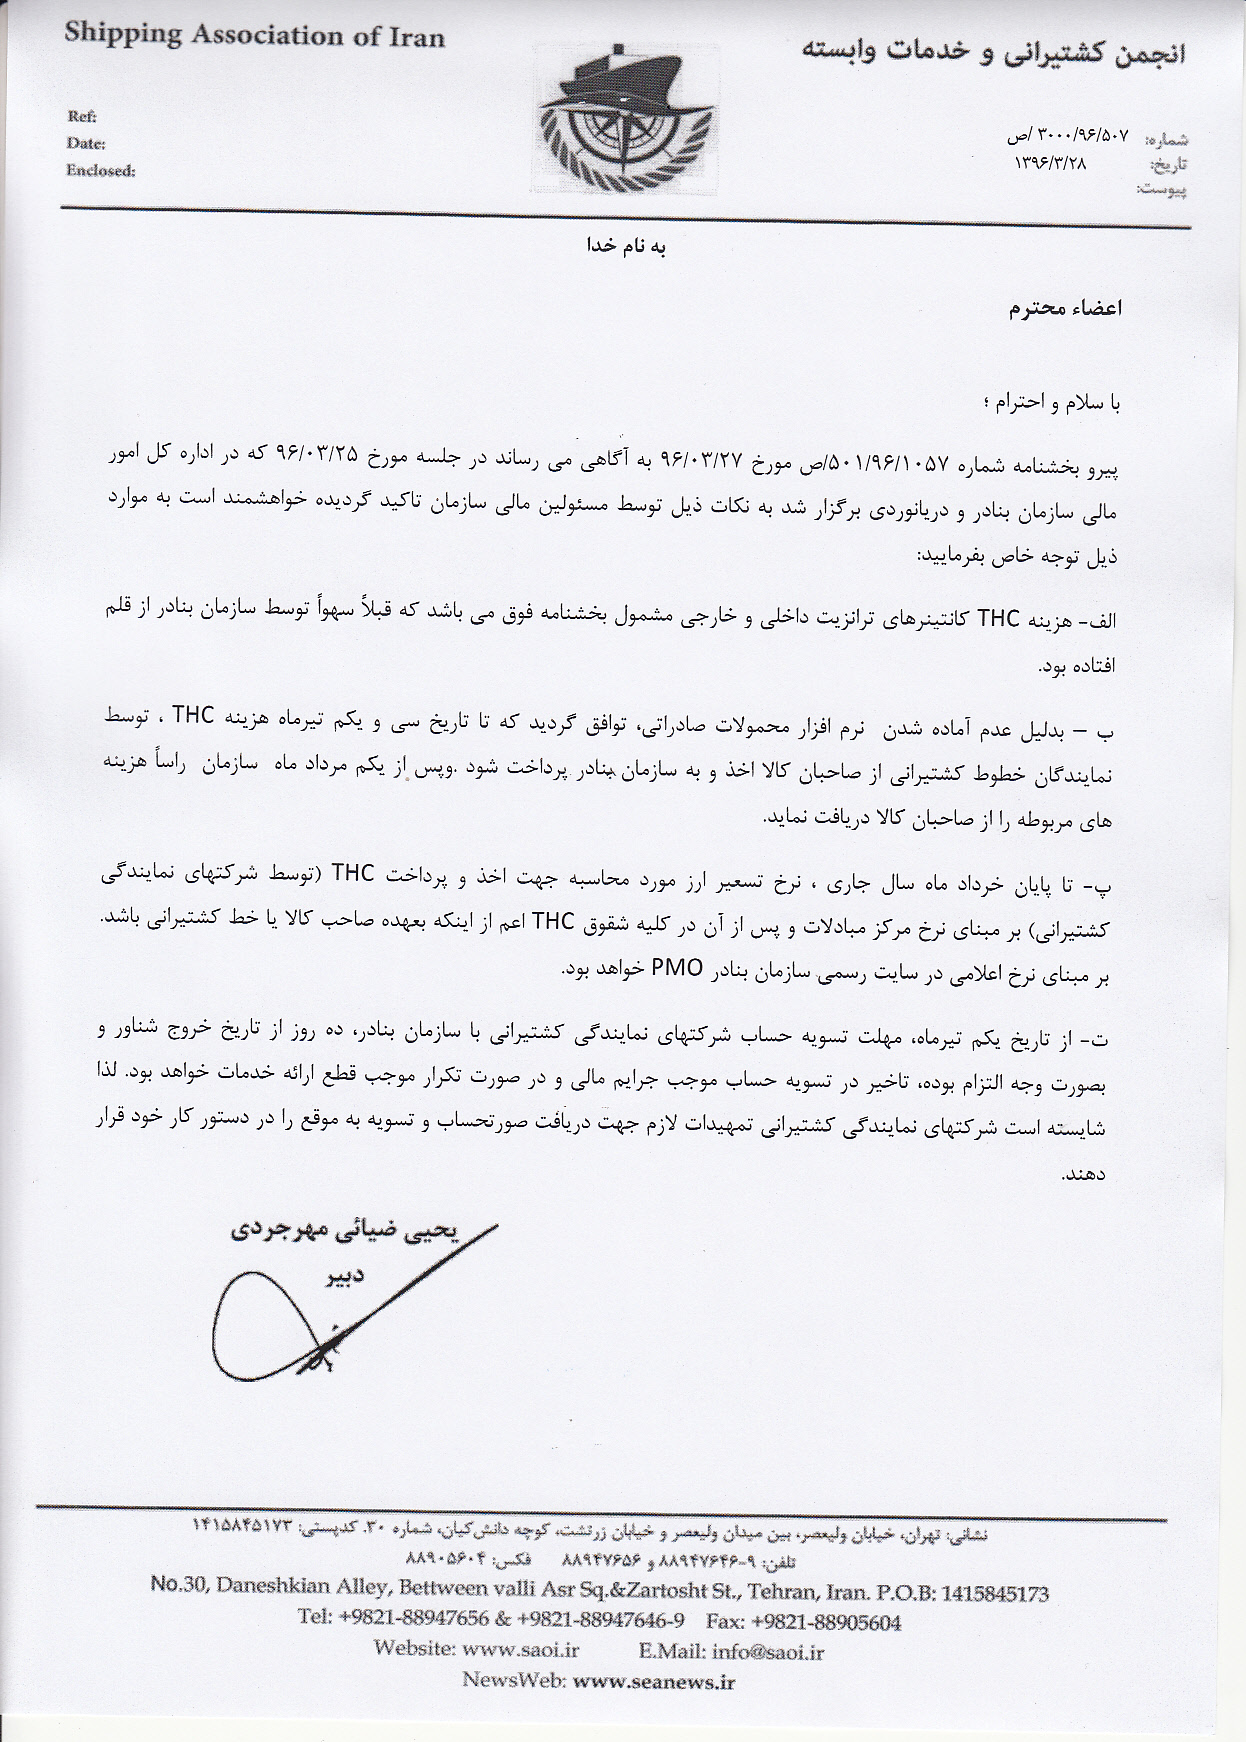 Shipping Association of Iran
انجمن کشتیرانی و خدمات وابسته
Ref:
Date:
Enclosed:
شماره: ۳۰۰۰/۹۶/۵۰۷ /ص
تاریخ: ۱۳۹۶/۳/۲۸
پیوست:
به نام خدا
اعضاء محترم
با سلام و احترام ؛
پیرو بخشنامه شماره ۵۰۱/۹۶/۱۰۵۷/ص مورخ ۹۶/۰۳/۲۷ به آگاهی می رساند در جلسه مورخ ۹۶/۰۳/۲۵ که در اداره کل امور
مالی سازمان بنادر و دریانوردی برگزار شد به نکات ذیل توسط مسئولین مالی سازمان تاکید گردیده خواهشمند است به موارد
ذیل توجه خاص بفرمایید:
الف- هزینه THC کانتینرهای ترانزیت داخلی و خارجی مشمول بخشنامه فوق می باشد که قبلاً سهواً توسط سازمان بنادر از قلم
افتاده بود.
ب – بدلیل عدم آماده شدن نرم افزار محمولات صادراتی، توافق گردید که تا تاریخ سی و یکم تیرماه هزینه THC ، توسط
نمایندگان خطوط کشتیرانی از صاحبان کالا اخذ و به سازمان بنادر پرداخت شود .وپس از یکم مرداد ماه سازمان راساً هزینه
های مربوطه را از صاحبان کالا دریافت نماید.
پ- تا پایان خرداد ماه سال جاری ، نرخ تسعیر ارز مورد محاسبه جهت اخذ و پرداخت THC (توسط شرکتهای نمایندگی
کشتیرانی) بر مبنای نرخ مرکز مبادلات و پس از آن در کلیه شقوق THC اعم از اینکه بعهده صاحب کالا یا خط کشتیرانی باشد.
بر مبنای نرخ اعلامی در سایت رسمی سازمان بنادر PMO خواهد بود.
ت- از تاریخ یکم تیرماه، مهلت تسویه حساب شرکتهای نمایندگی کشتیرانی با سازمان بنادر، ده روز از تاریخ خروج شناور و
بصورت وجه التزام بوده، تاخیر در تسویه حساب موجب جرایم مالی و در صورت تکرار موجب قطع ارائه خدمات خواهد بود. لذا
شایسته است شرکتهای نمایندگی کشتیرانی تمهیدات لازم جهت دریافت صورتحساب و تسویه به موقع را در دستور کار خود قرار
دهند.
یحیی ضیائی مهرجردی
دبیر
نشانی: تهران، خیابان ولیعصر، بین میدان ولیعصر و خیابان زرتشت، کوچه دانش‌کیان، شماره ۳۰. کدپستی: ۱۴۱۵۸۴۵۱۷۳
تلفن: ۹-۸۸۹۴۷۶۴۶ و ۸۸۹۴۷۶۵۶ فکس: ۸۸۹۰۵۶۰۴
No.30, Daneshkian Alley, Bettween valli Asr Sq.&Zartosht St., Tehran, Iran. P.O.B: 1415845173
Tel: +9821-88947656 & +9821-88947646-9 Fax: +9821-88905604
Website: www.saoi.ir E.Mail: info@saoi.ir
NewsWeb: www.seanews.ir